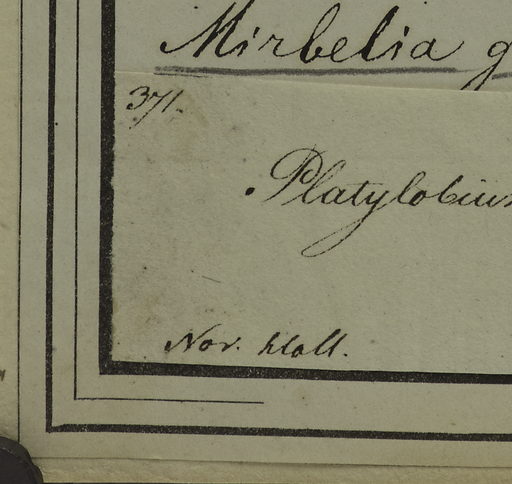 Mirbelia g
371.
Platylobium
Nov. Holl.